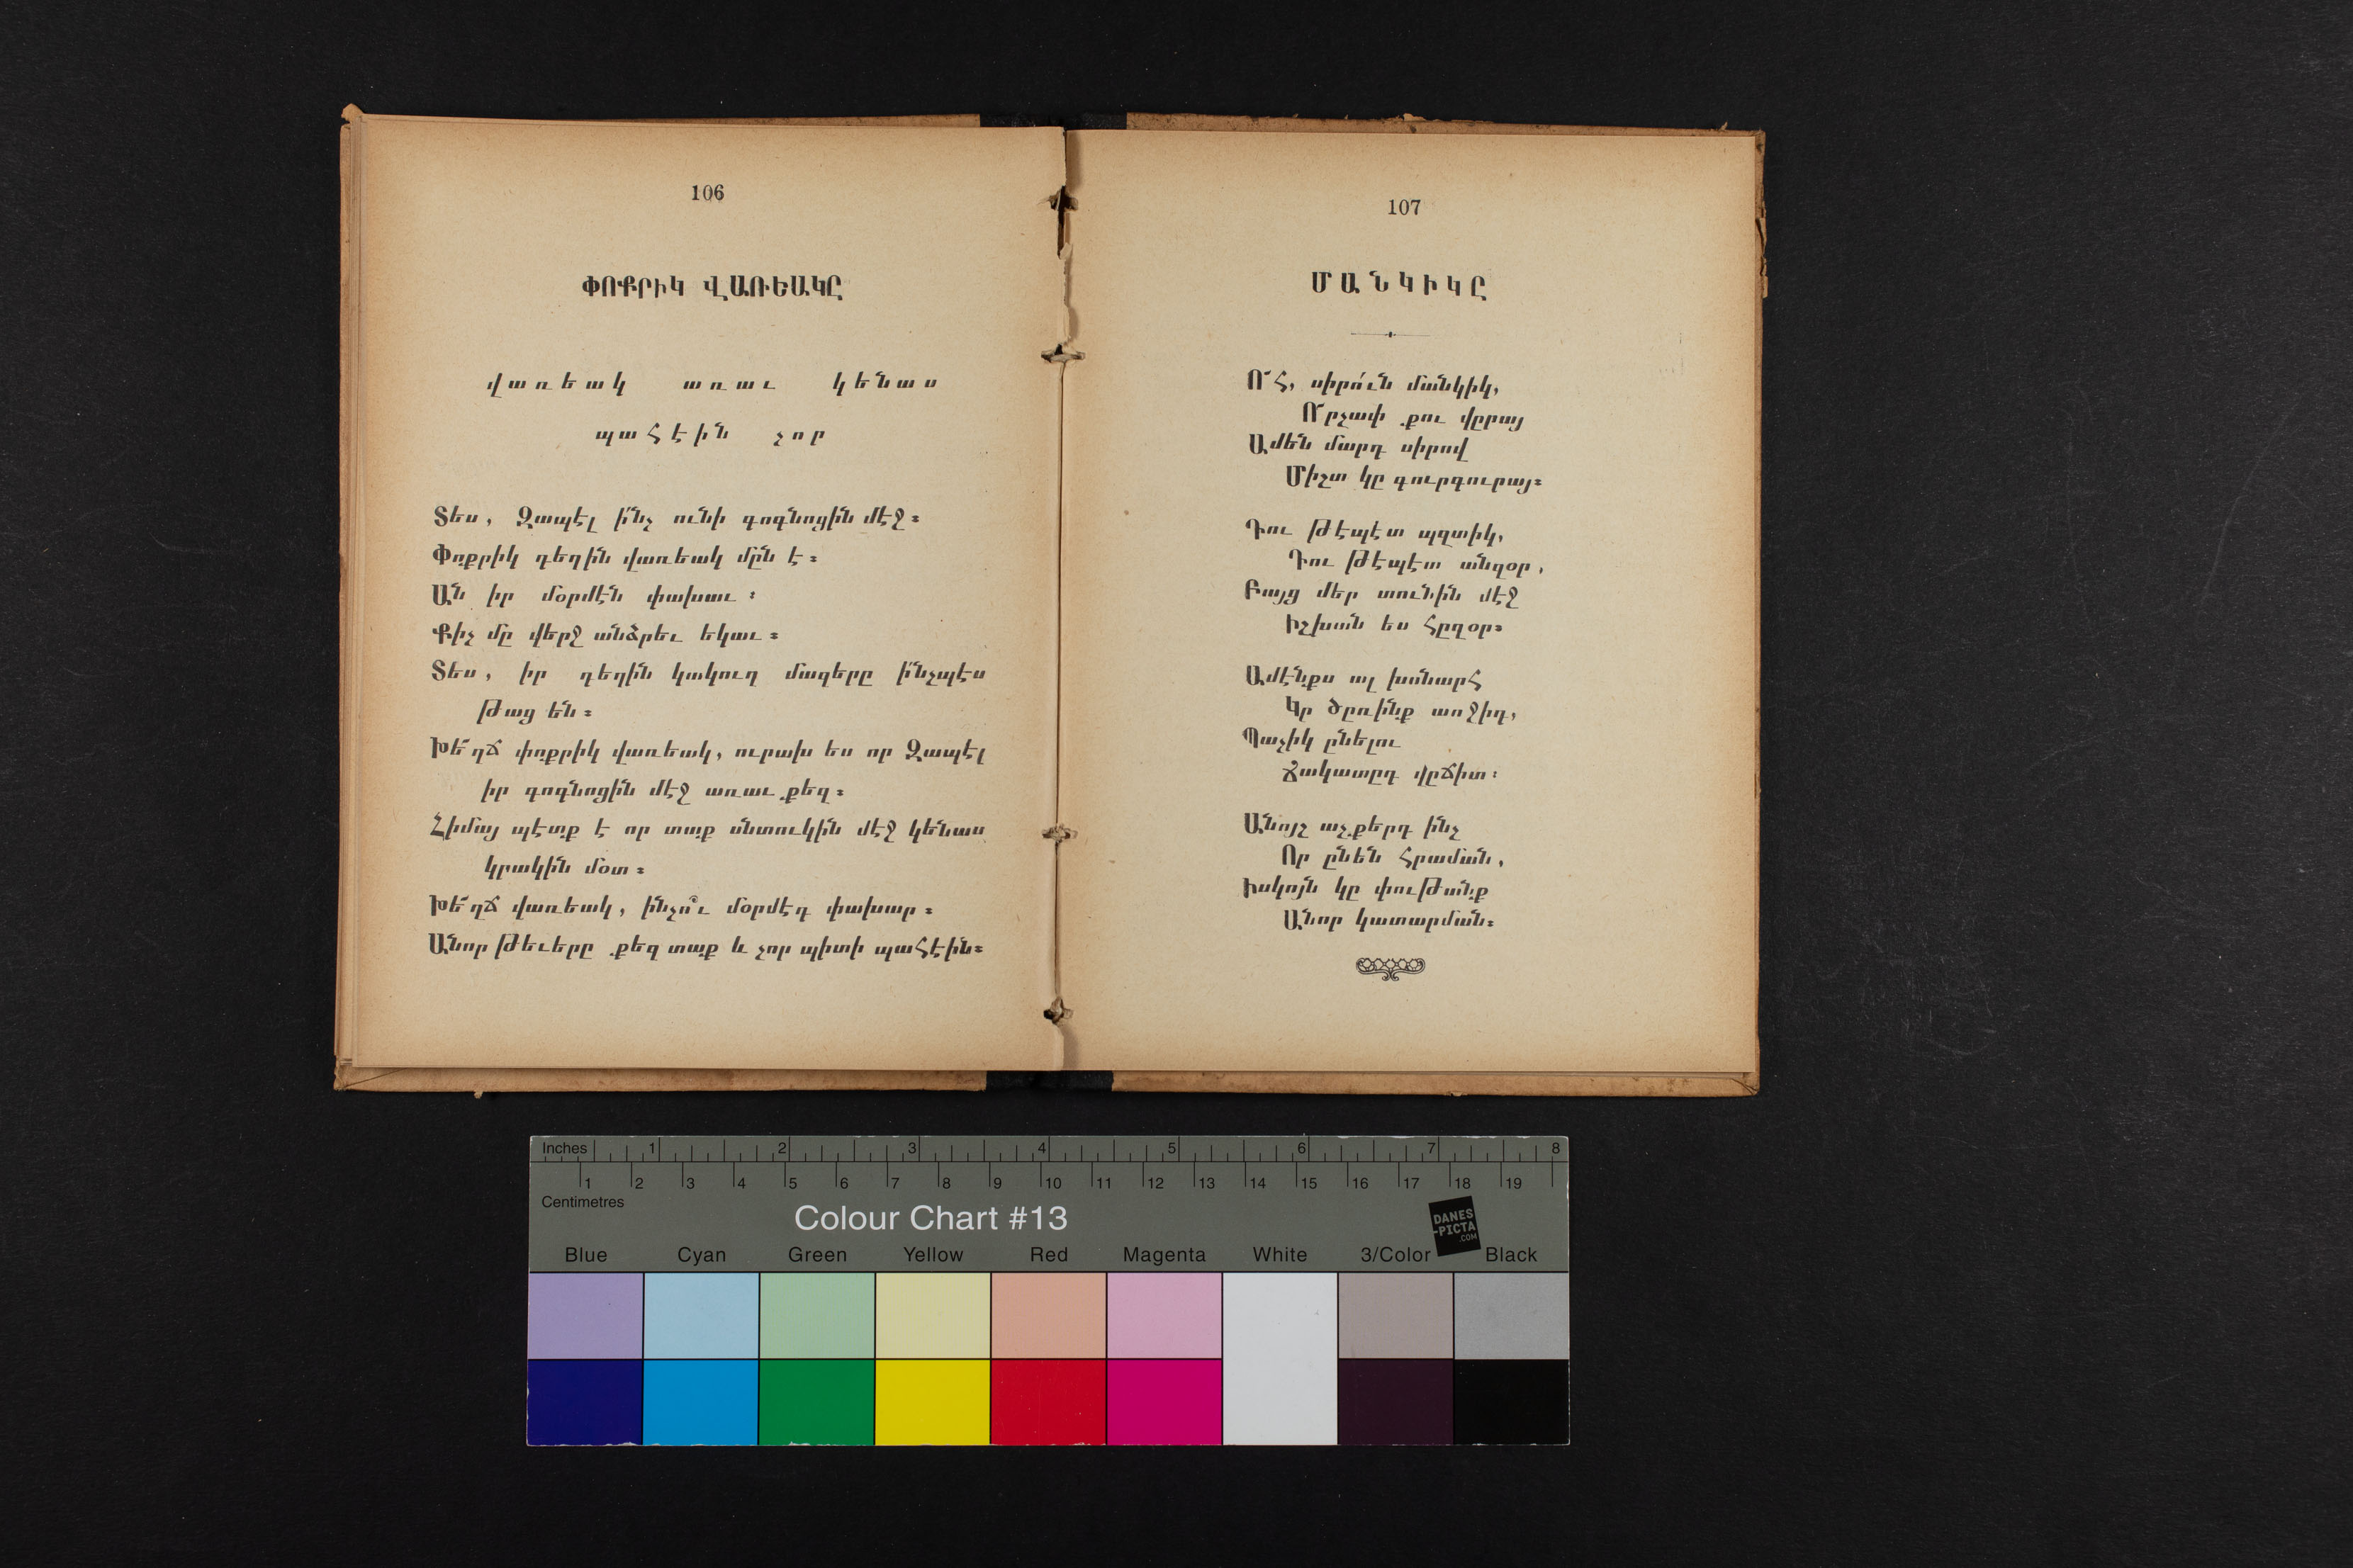 106
ՓՈՔՐԻԿ ՎԱՌԵԱԿԸ
վառեակ առաւ կենաս
պահէին չոր
Տես, Զապէլ ի՞նչ ունի գոգնոցին մէջ։
Փոքրիկ դեղին վառեակ մըն է։
Ան իր մօրմէն փախաւ։
Քիչ մը վերջ անձրեւ եկաւ։
Տես, իր դեղին կակուղ մազերը ի՜նչպէս
թաց են։
Խե՜ղճ փոքրիկ վառեակ, ուրախ ես որ Զապէլ
իր գոգնոցին մէջ առաւ քեզ։
Հիմայ պէտք է որ տաք սնտուկին մէջ կենաս
կրակին մօտ։
Խե՜ղճ վառեակ, ինչո՞ւ մօրմէդ փախար։
Անոր թեւերը քեզ տաք և չոր պիտի պահէին։
107
ՄԱՆԿԻԿԸ
Ո՜հ, սիրո՛ւն մանկիկ,
Ո՜րչափ քու վըրայ
Ամեն մարդ սիրով
Միշտ կը գուրգուրայ։
Դու թէպէտ պզտիկ,
Դու թէպէտ անզօր,
Բայց մեր տունին մէջ
Իշխան ես հըզօր։
Ամէնքս ալ խոնարհ
Կը ծըռինք առջիդ,
Պաչիկ ընելու
Ճակատըդ վըճիտ։
Անոյշ աչքերդ ինչ
Որ ընեն հրաման,
Իսկոյն կը փութանք
Անոր կատարման։
Inches 1 2 3 4 5 6 7 8
1 2 3 4 5 6 7 8 9 10 11 12 13 14 15 16 17 18 19
Centimetres
Colour Chart #13
DANES
-PICTA
.COM
Blue Cyan Green Yellow Red Magenta White 3/Color Black